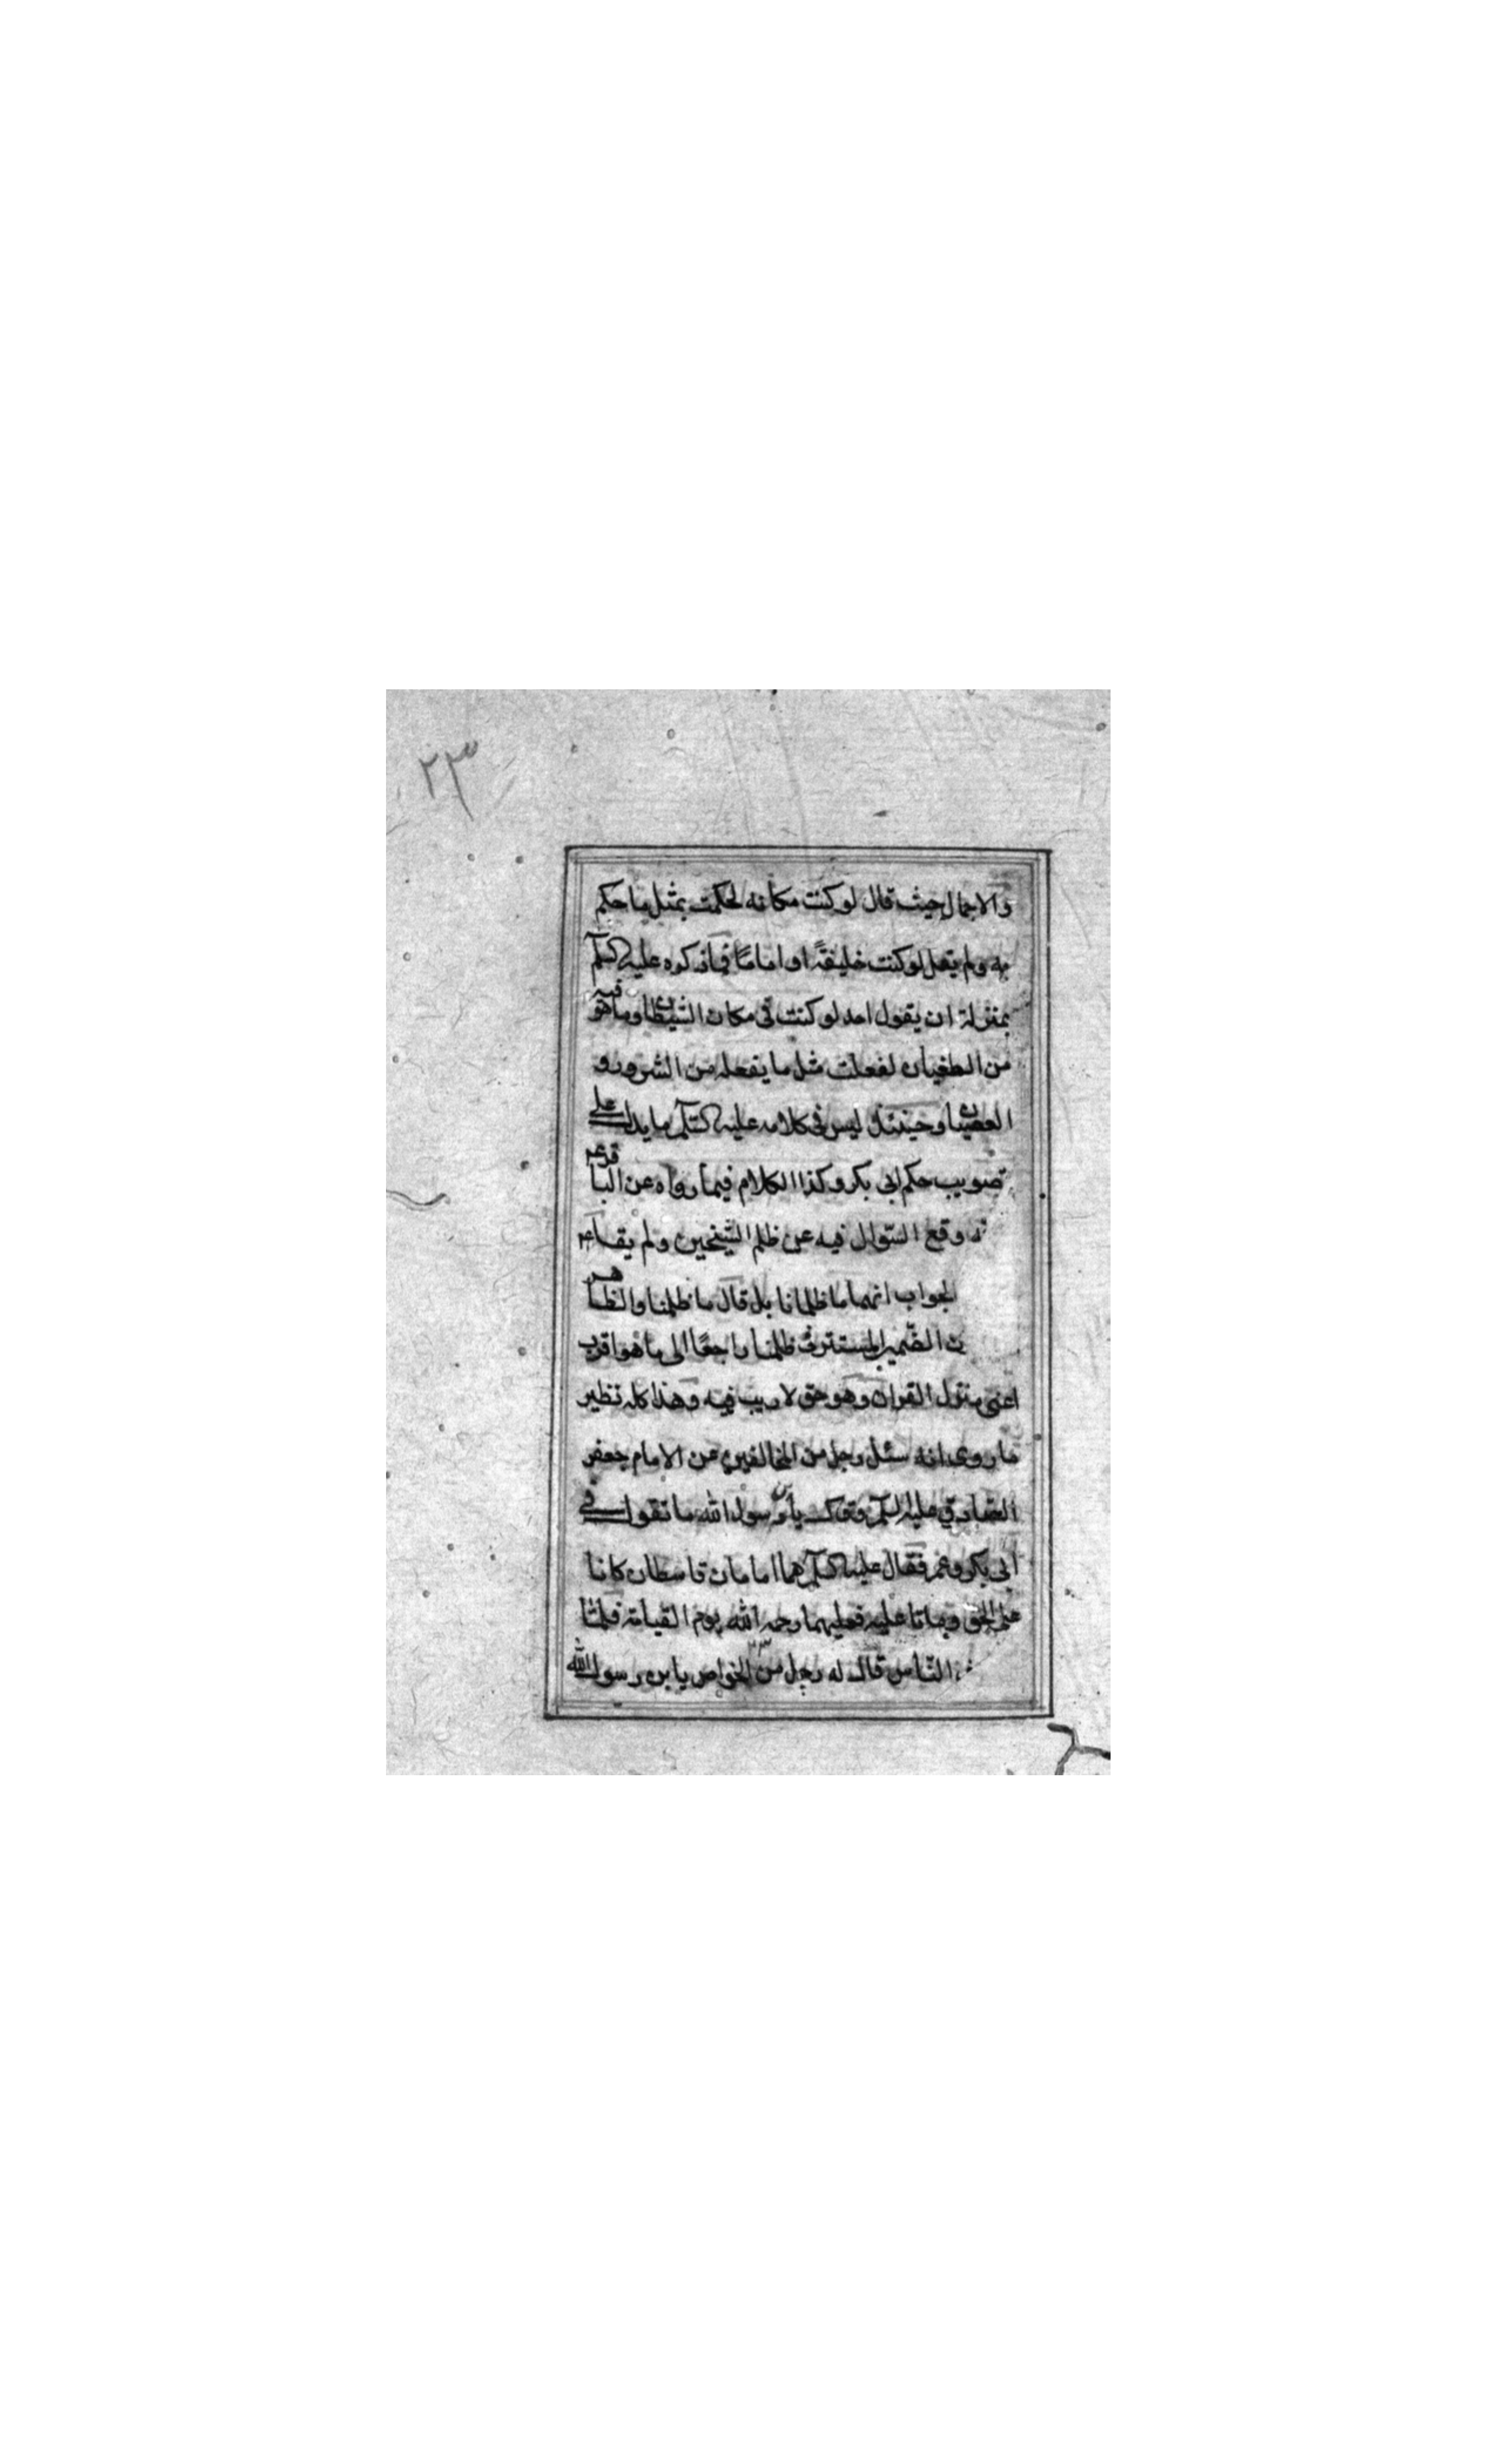 ٢٣
والاجمال حيث قال لو كنت مكانه لحكمت بمثل ما حكم
به ولم يقل لو كنت خليفةً او امامًا فما ذكره عليه السلم
بمنزلة ان يقول احد لو كنت فى مكان الشيطان وما هو فيه
من الطغيان لفعلت مثل ما يفعله من الشرور و
العصيان وحينئذ ليس فى كلامه عليه السلم ما يدل على
تصويب حكم ابى بكر وكذا الكلام فيما رواه عن الباقر ع م
وقع السّوال فيه عن ظلم الشيخين ولم يقل ع م
الجواب انهما ما ظلمانا بل قال ما ظلمنا والظاهر
الضّمير المستتر فى ظلمنا راجعًا الى ما هو اقرب
اعنى منزل القران وهو حق لا ريب فيه وهذا كله نظير
ما روى انه سئل رجل من المخالفين عن الامام جعفر
الصّادق عليه السلم وقال يا بن رسول الله ما تقول فى
ابى بكر وعمر فقال عليه السلم هما امامان قاسطان كانا
على الحق وماتا عليه فعليهما رحمة الله يوم القيامة فلمّا
النّاس قال له رجل من الخواص يا بن رسول الله